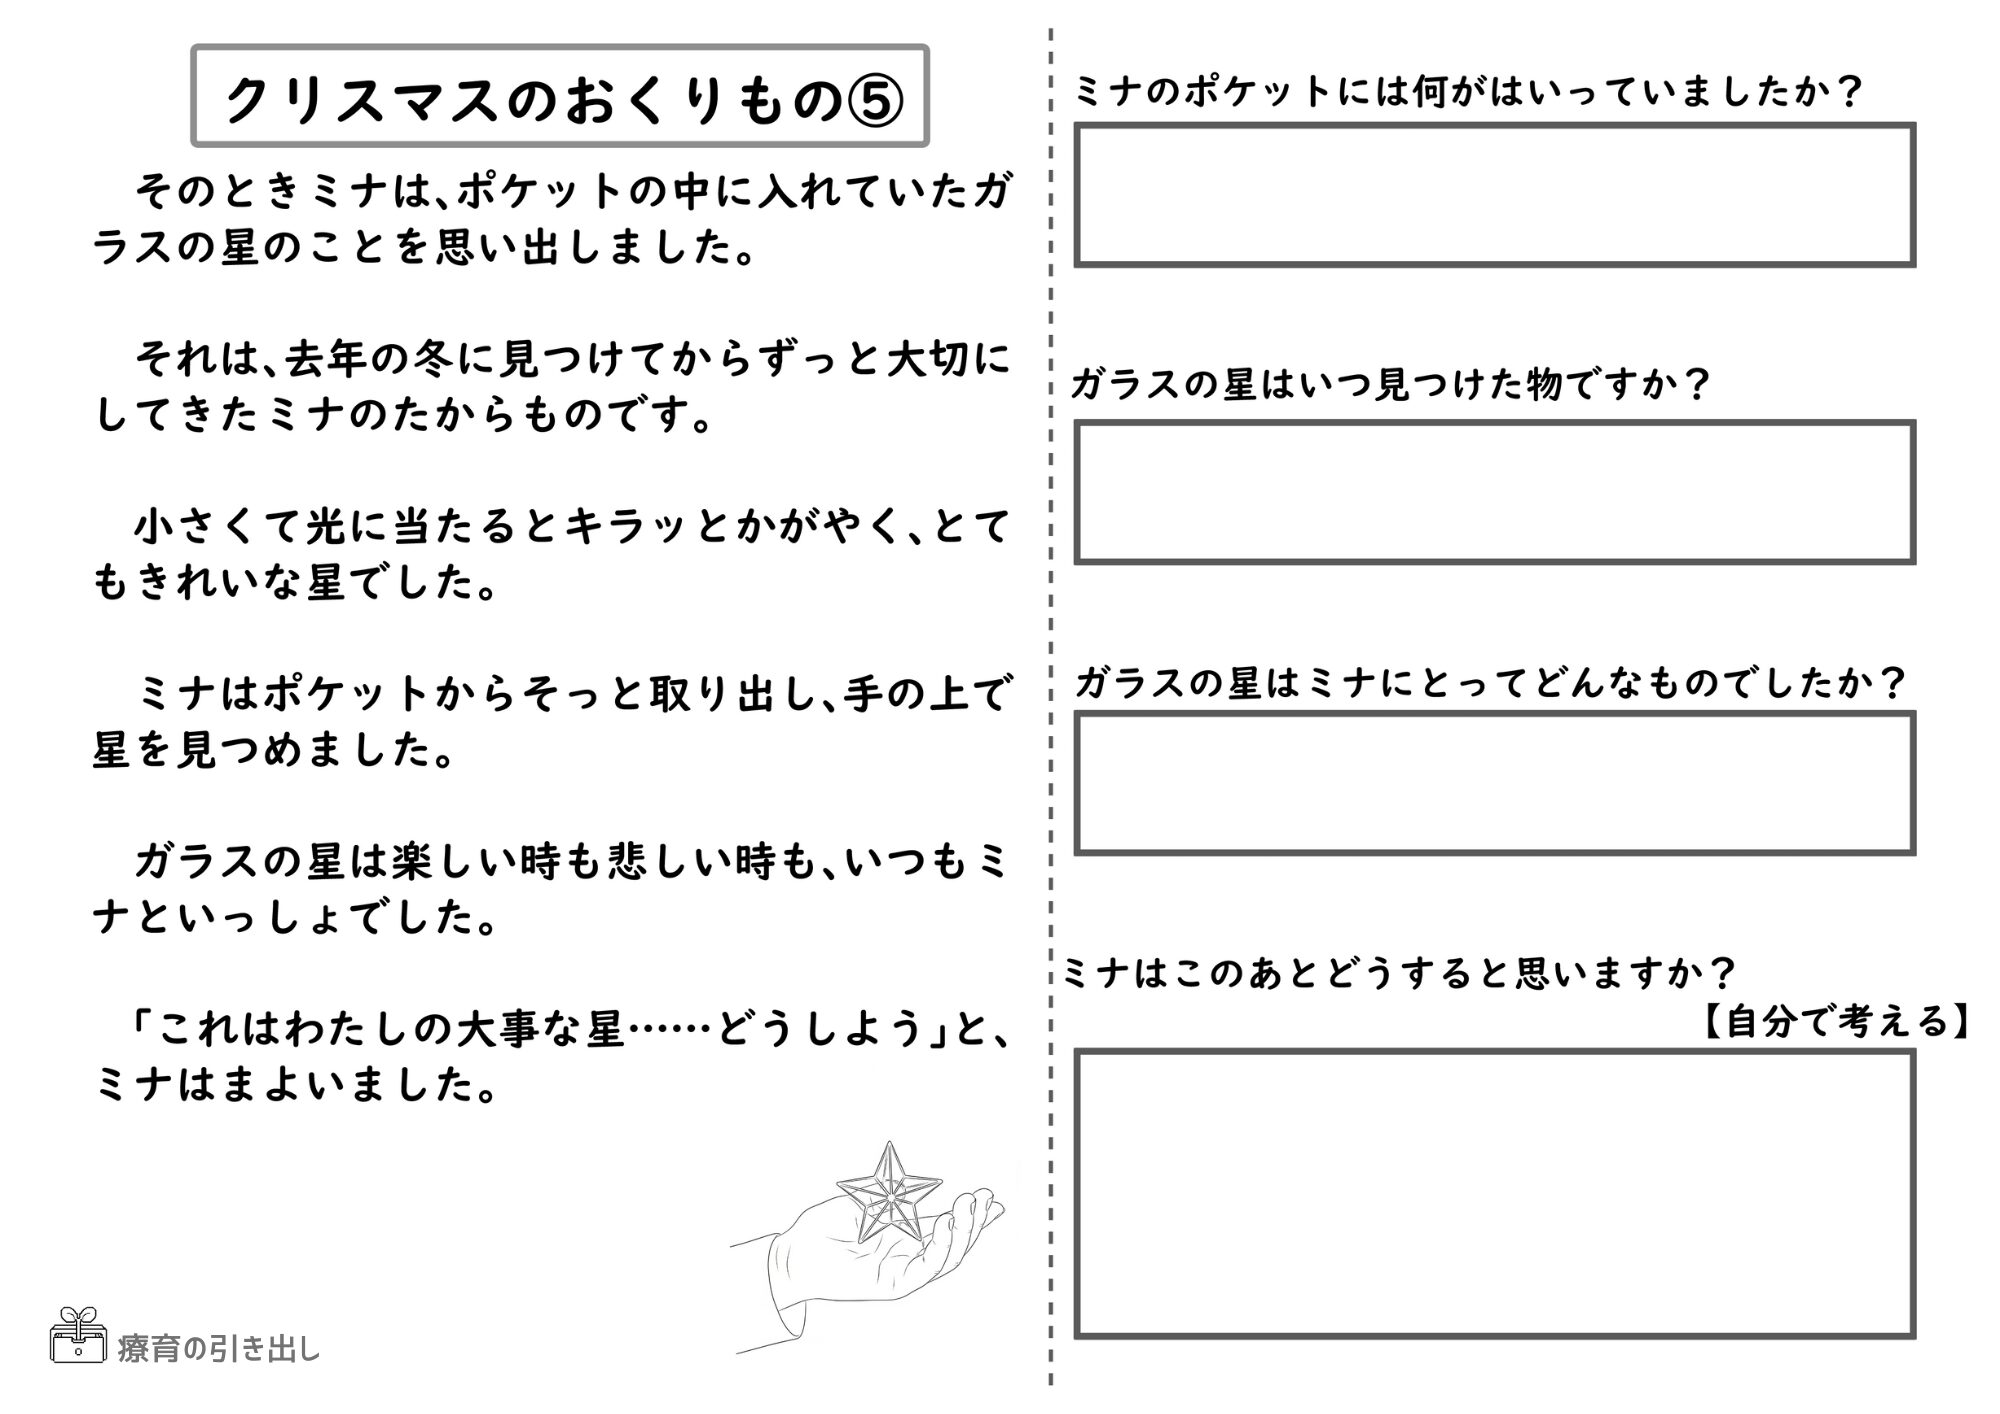 クリスマスのおくりもの⑤
　そのときミナは、ポケットの中に入れていたガ
ラスの星のことを思い出しました。
　それは、去年の冬に見つけてからずっと大切に
してきたミナのたからものです。
　小さくて光に当たるとキラッとかがやく、とて
もきれいな星でした。
　ミナはポケットからそっと取り出し、手の上で
星を見つめました。
　ガラスの星は楽しい時も悲しい時も、いつもミ
ナといっしょでした。
　「これはわたしの大事な星……どうしよう」と、
ミナはまよいました。
療育の引き出し
ミナのポケットには何がはいっていましたか？
ガラスの星はいつ見つけた物ですか？
ガラスの星はミナにとってどんなものでしたか？
ミナはこのあとどうすると思いますか？
【自分で考える】